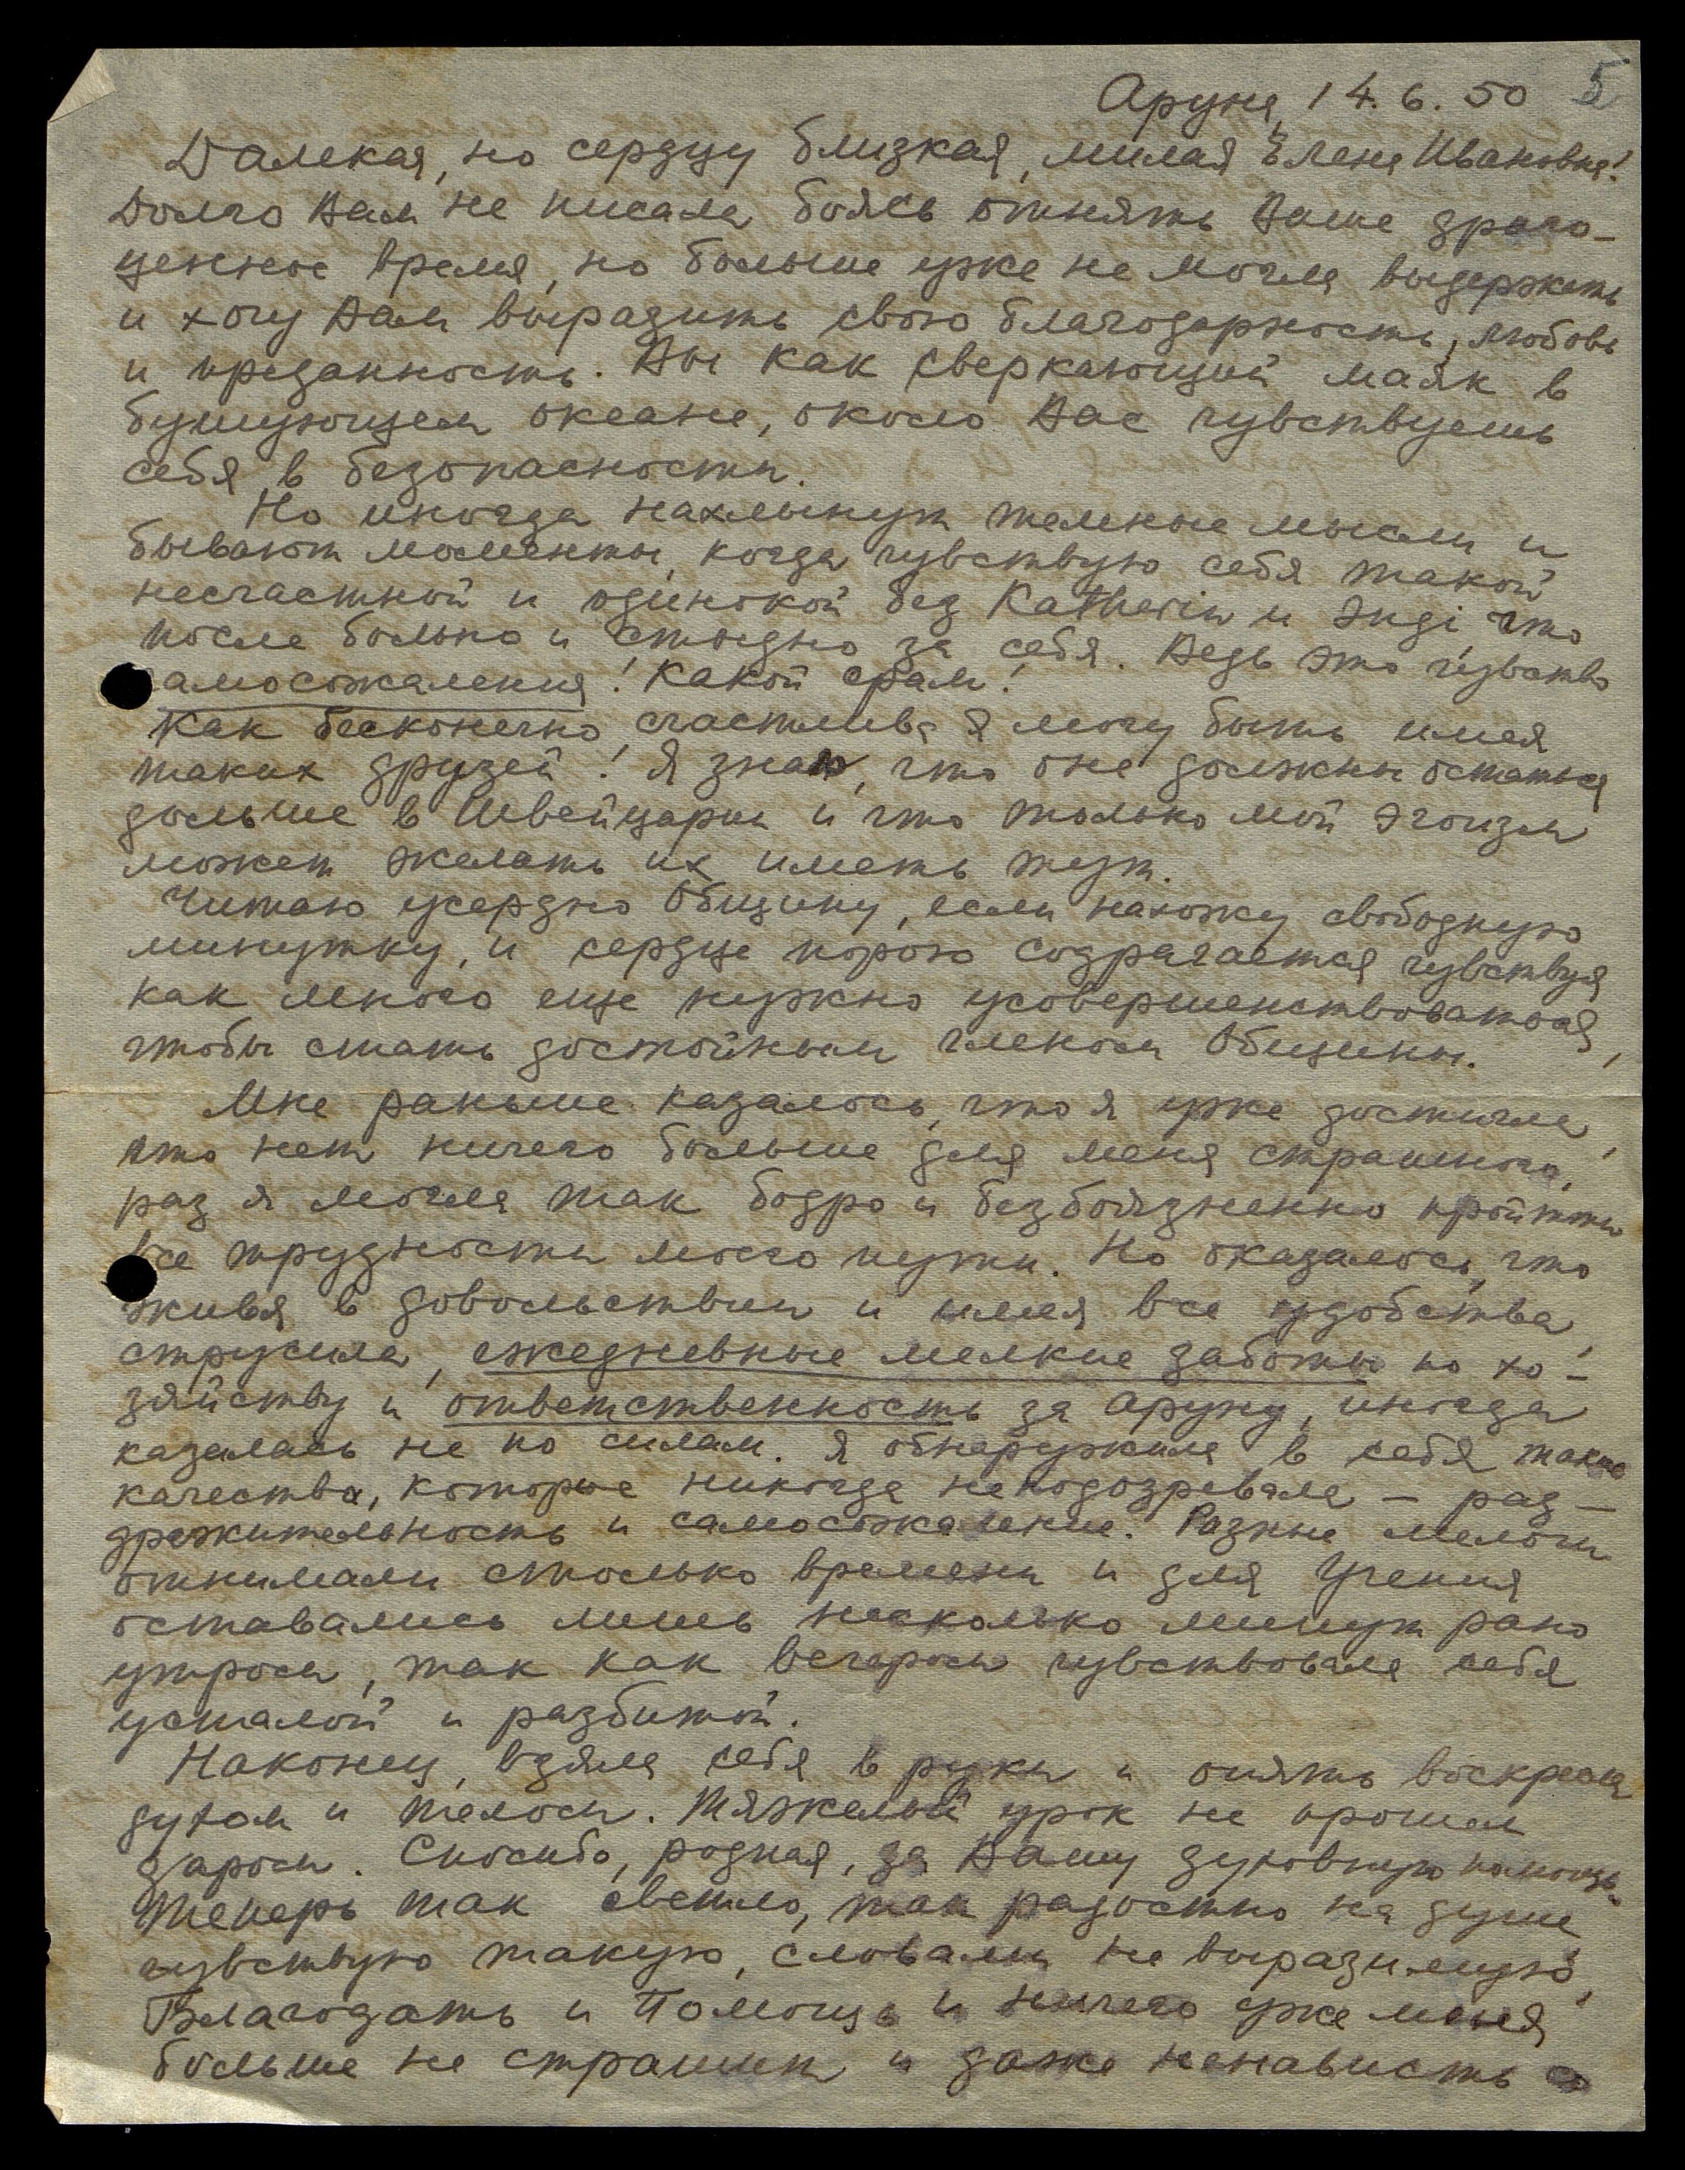 Аруна, 14.6.50 5
Далекая, но сердцу близкая, милая Елена Ивановна!
Долго Вам не писала боясь отнять Ваше драго-
ценное время, но больше уже не могла выдержать
и хочу Вам выразить свою благодарность, любовь
и преданность. Вы как сверкающий маяк в
бушующем океане, около Вас чувствуешь
себя в безопасности.
Но иногда нахлынут темные мысли и
бывают моменты, когда чувствую себя такой
несчастной и одинокой без Katherin и Энди что
после больно и стыдно за себя. Ведь это чувство
амосожаления! Какой срам!
Как бесконечно счастлива я могу быть имея
таких друзей! Я знаю, что оне должны остаться
дольше в Швейцарии и что только мой эгоизм
может желать их иметь тут.
Читаю усердно Общину, если нахожу свободную
минутку, и сердце порою содрагается чувствуя
как много еще нужно усовершенствоваться,
чтобы стать достойным членом Общины.
Мне раньше казалось, что я уже достигла,
что нет ничего больше для меня страшного,
раз я могла так бодро и безбоязненно пройтти
все трудности моего пути. Но оказалось, что
живя в довольствии и имея все удобства,
струсила, ежедневные мелкие заботы по хо-
зяйству и ответственность за Аруну, иногда
казалась не по силам. Я обнаружила в себя такие
качества, которые никогда неподозревала – раз-
дрежительность и самосожаление. Разные мелочи
отнимали столько времени и для Учения
оставались лишь несколько минут рано
утром, так как вечером чувствовала себя
усталой и разбитой.
Наконец, взяла себя в руки и опять воскресла
духом и телом. Тяжелый урок не прошел
даром. Спасибо, родная, за Вашу духовную помощь.
Теперь так светло, так радостно на душе
чувствую такую, словами не выразимую,
Благодать и Помощь и ничего уже меня
больше не страшит и даже ненависть